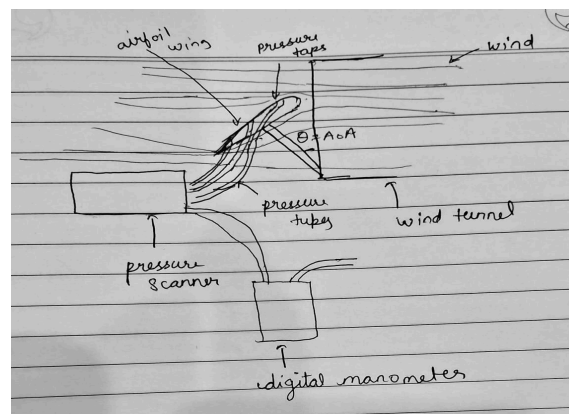 airfoil
wing
pressure
taps
wind
θ = AoA
pressure
tupes
wind tunnel
pressure
scanner
digital manometer